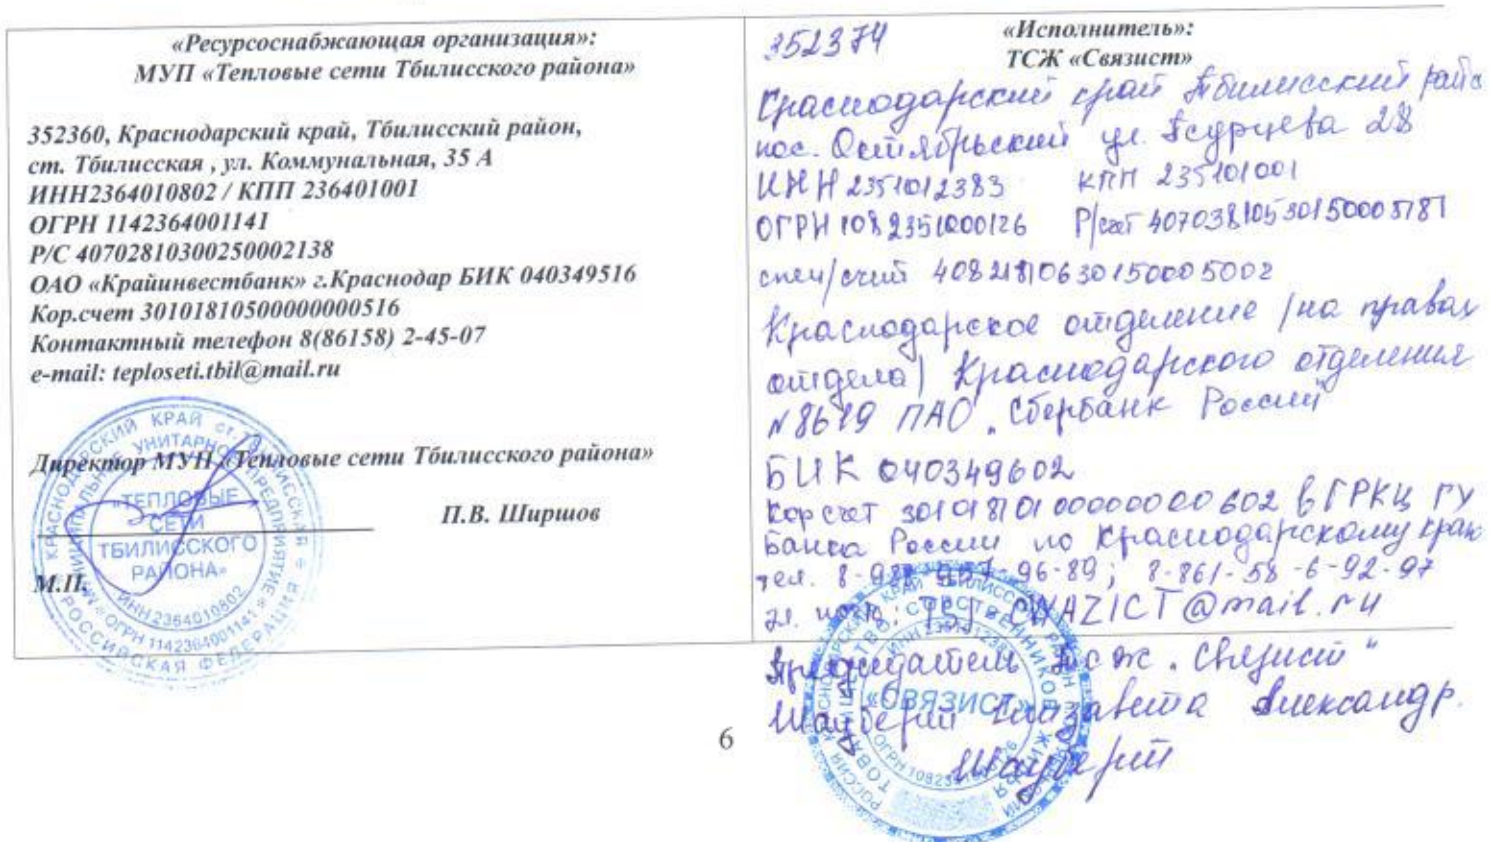 «Ресурсоснабжающая организация»:
МУП «Тепловые сети Тбилисского района»
352360, Краснодарский край, Тбилисский район,
ст. Тбилисская , ул. Коммунальная, 35 А
ИНН2364010802 / КПП 236401001
ОГРН 1142364001141
Р/С 40702810300250002138
ОАО «Крайинвестбанк» г.Краснодар БИК 040349516
Кор.счет 30101810500000000516
Контактный телефон 8(86158) 2-45-07
e-mail: teploseti.tbil@mail.ru
Директор МУП «Тепловые сети Тбилисского района»
П.В. Ширшов
М.П.
«ТЕПЛОВЫЕ
СЕТИ
ТБИЛИССКОГО
РАЙОНА»
ИНН 2364010802
ОГРН 1142364001141
РОССИЙСКАЯ ФЕДЕРАЦИЯ
«Исполнитель»:
ТСЖ «Связист»
352374
Краснодарский край Тбилисский
пос. Октябрьский ул. 28
ИНН 2351012383 КПП 235101001
ОГРН 1082351000126 Р/счет 40703810530150005181
спец/счет 40821810630150005002
Краснодарское отделение /на правах
отдела) Краснодарского отделения
№8619 ПАО „Сбербанк России"
БИК 040349602
Кор счет 30101810100000000602 в ГРКЦ ГУ
Банка России по Краснодарскому
тел. 96-89; 8-861-58-6-92-97
CWAZICT@mail.ru
Председатель ТСЖ „Связист"
Елизавета Александр.
«СВЯЗИСТ»
6